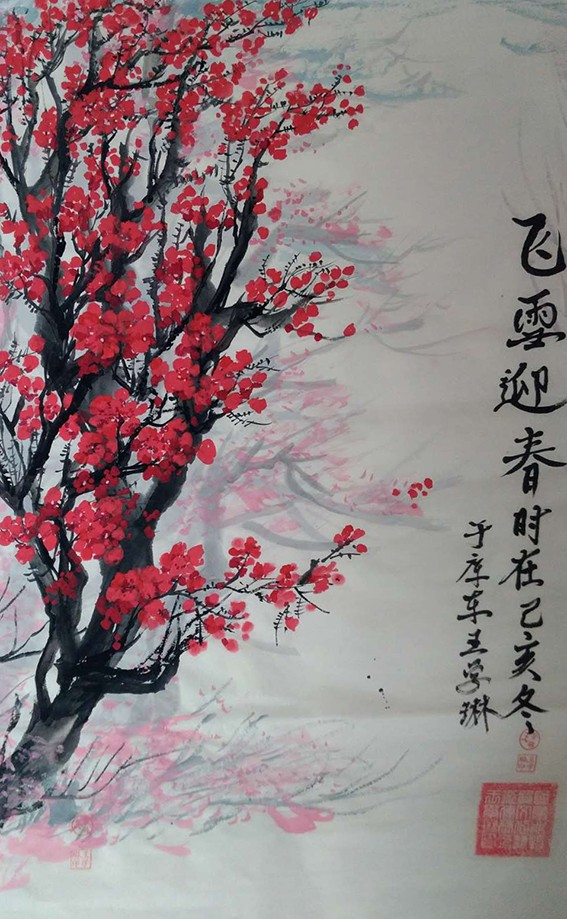 飞雪迎春时在己亥冬
于库东王学琳